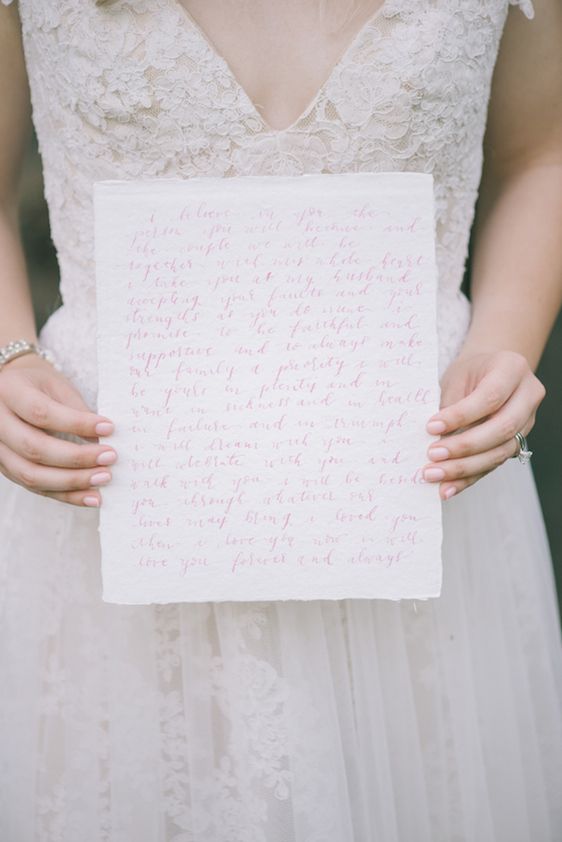 i believe in you the
person you will become and
the couple we will be
together with my whole heart
i take you as my husband
accepting your faults and your
strengths as you do mine i
promise to be faithful and
supportive and to always make
our family a priority i will
be yours in plenty and in
want in sickness and in health
in failure and in triumph
i will dream with you i
will celebrate with you and
walk with you i will be beside
you through whatever our
lives may bring i loved you
then i love you now i will
love you forever and always